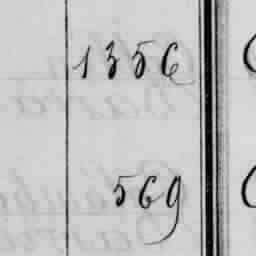 1356
569